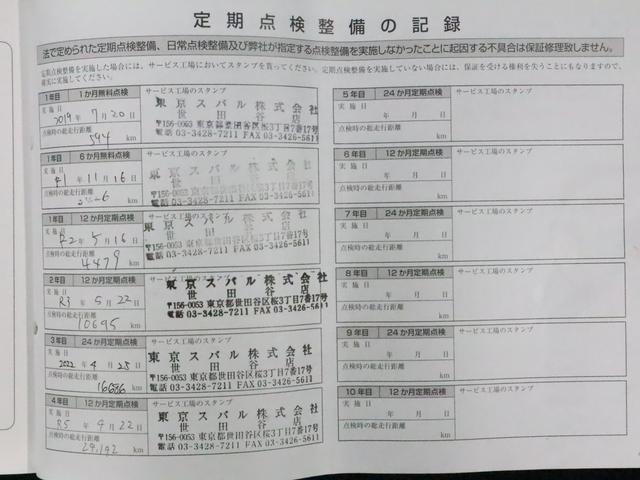 定期点検整備の記録
法で定められた定期点検整備、日常点検整備及び弊社が指定する点検整備を実施しなかったことに起因する不具合は保証修理致しません。
定期点検整備を実施した場合には、サービス工場においてスタンプを貰ってください。定期点検整備を実施していない場合には、保証を受ける権利を失うことにもなりますので、
確実に実施してください。
1年目 1か月無料点検 サービス工場のスタンプ
実施日
2019年 7月 20日
点検時の総走行距離
594 km
東京スバル株式会社
世田谷店
〒156-0053 東京都世田谷区桜3丁目7番17号
電話 03-3428-7211 FAX 03-3426-5611
1年目 6か月無料点検 サービス工場のスタンプ
実施日
R1年 11月 16日
点検時の総走行距離
km
東京スバル株式会社
世田谷店
〒156-0053 東京都世田谷区桜3丁目7番17号
電話 03-3428-7211 FAX 03-3426-5611
1年目 12か月定期点検 サービス工場のスタンプ
実施日
R2年 5月 16日
点検時の総走行距離
4479 km
東京スバル株式会社
世田谷店
〒156-0053 東京都世田谷区桜3丁目7番17号
電話 03-3428-7211 FAX 03-3426-5611
2年目 12か月定期点検 サービス工場のスタンプ
実施日
R3年 5月 22日
点検時の総走行距離
10695 km
東京スバル株式会社
世田谷店
〒156-0053 東京都世田谷区桜3丁目7番17号
電話 03-3428-7211 FAX 03-3426-5611
3年目 24か月定期点検 サービス工場のスタンプ
実施日
2022年 4月 25日
点検時の総走行距離
km
東京スバル株式会社
世田谷店
〒156-0053 東京都世田谷区桜3丁目7番17号
電話 03-3428-7211 FAX 03-3426-5611
4年目 12か月定期点検 サービス工場のスタンプ
実施日
R5年 4月 22日
点検時の総走行距離
24,192 km
東京スバル株式会社
世田谷店
〒156-0053 東京都世田谷区桜3丁目7番17号
電話 03-3428-7211 FAX 03-3426-5611
5年目 24か月定期点検 サービス工場のスタンプ
実施日
年 月 日
点検時の総走行距離
km
6年目 12か月定期点検 サービス工場のスタンプ
実施日
年 月 日
点検時の総走行距離
km
7年目 24か月定期点検 サービス工場のスタンプ
実施日
年 月 日
点検時の総走行距離
km
8年目 12か月定期点検 サービス工場のスタンプ
実施日
年 月 日
点検時の総走行距離
km
9年目 24か月定期点検 サービス工場のスタンプ
実施日
年 月 日
点検時の総走行距離
km
10年目 12か月定期点検 サービス工場のスタンプ
実施日
年 月 日
点検時の総走行距離
km